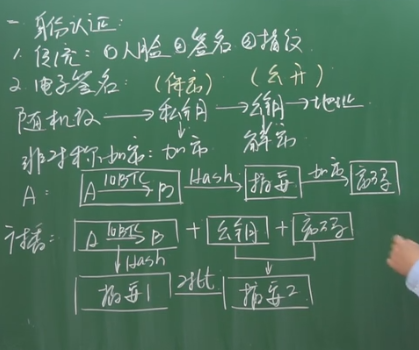 一 身份认证:
1. 传统: ①人脸 ②签名 ③指纹
2. 电子签名: (保密) (公开)
随机数 → 私钥 → 公钥 → 地址
非对称加密: 加密 解密
A: A 10BTC B Hash 摘要 加密 密码
广播: A 10BTC B + 公钥 + 密码
Hash
摘要1 对比 摘要2